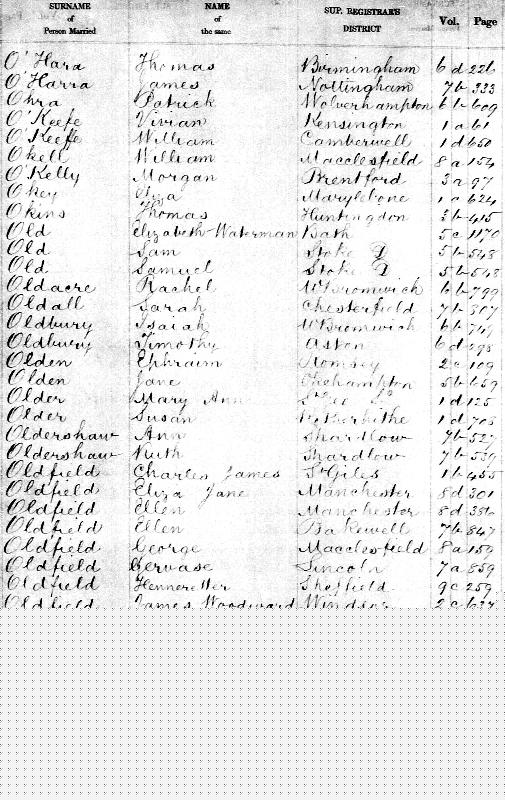 SURNAME of Person Married NAME of the same SUP. REGISTRAR'S DISTRICT Vol. Page
O'Hara Thomas Birmingham 6 d 226
O'Harra James Nottingham 7b 333
Ohra Patrick Wolverhampton 6 b 609
O'Keefe Vivian Kensington 1 a 61
O'Keeffe William Camberwell 1 d 650
Okell William Macclesfield 8 a 154
O'Kelly Morgan Brentford 3 a 97
Okey Eliza Marylebone 1 a 624
Okins Thomas Huntingdon 3 b 415
Old Elizabeth Waterman Bath 5 c 1170
Old Sam Stoke D 5 b 548
Old Samuel Stoke D 5 b 548
Oldacre Rachel W Bromwich 6 b 799
Oldall Sarah Chesterfield 7 b 307
Oldbury Isaiah W Bromwich 6 b 749
Oldbury Timothy Aston 6 d 298
Olden Ephraim Romsey 2 c 109
Olden Jane Okehampton 5 b 659
Older Mary Ann 1 d 125
Older Susan Rotherhithe 1 d 705
Oldershaw Ann Shardlow 7 b 527
Oldershaw Ruth Shardlow 7 b 539
Oldfield Charles James St Giles 1 b 455
Oldfield Eliza Jane Manchester 8 d 301
Oldfield Ellen Manchester 8 d 356
Oldfield Ellen Bakewell 7 b 847
Oldfield George Macclesfield 8 a 159
Oldfield Gervase Lincoln 7 a 859
Oldfield Henneretter Sheffield 9 c 259
Oldfield James Woodward Windsor 2 c 637